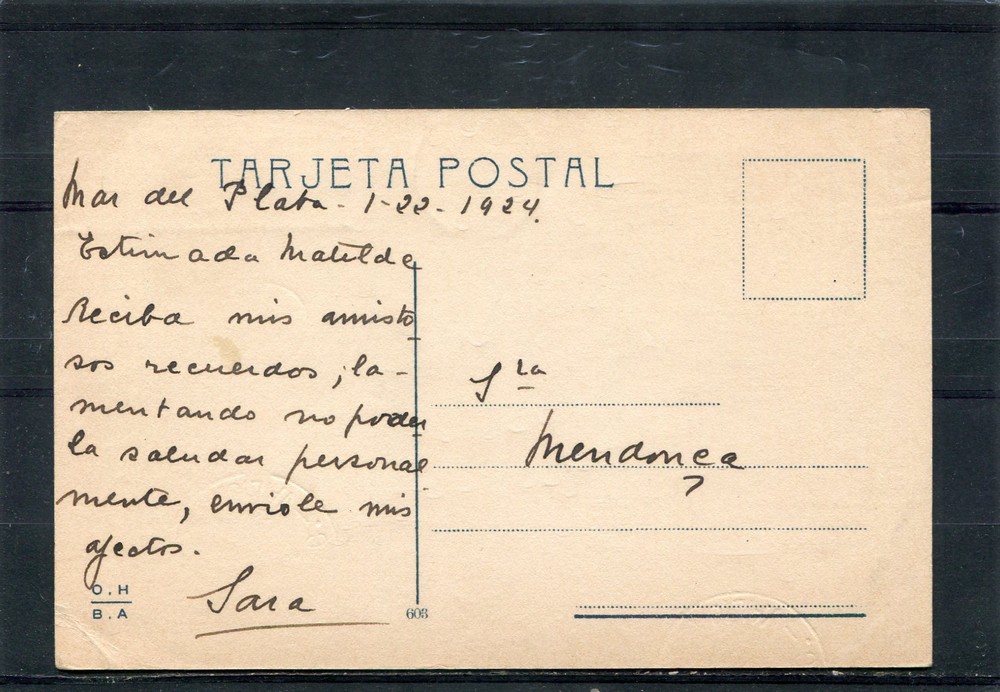 TARJETA POSTAL
Mar del Plata - 1-22-1924.
Estimada Matilde
Reciba mis amisto
sos recuerdos, la-
mentando no poder
la saludar personal
mente, enviole mis
afectos.
Sara
O.H
B.A
603
Sra
Mendonça